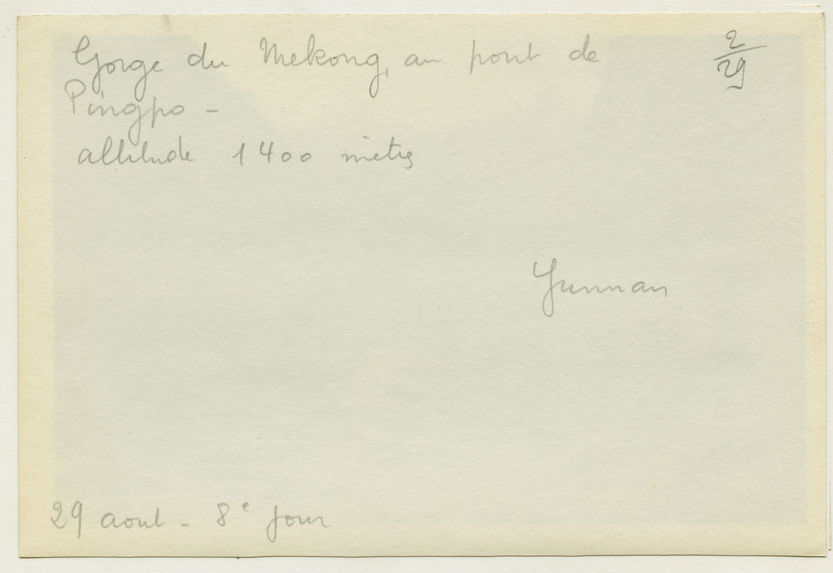 Gorge du Mekong, au pont de
Pingpo -
altitude 1400 mètres
2
29
Yunnan
29 aout - 8e jour